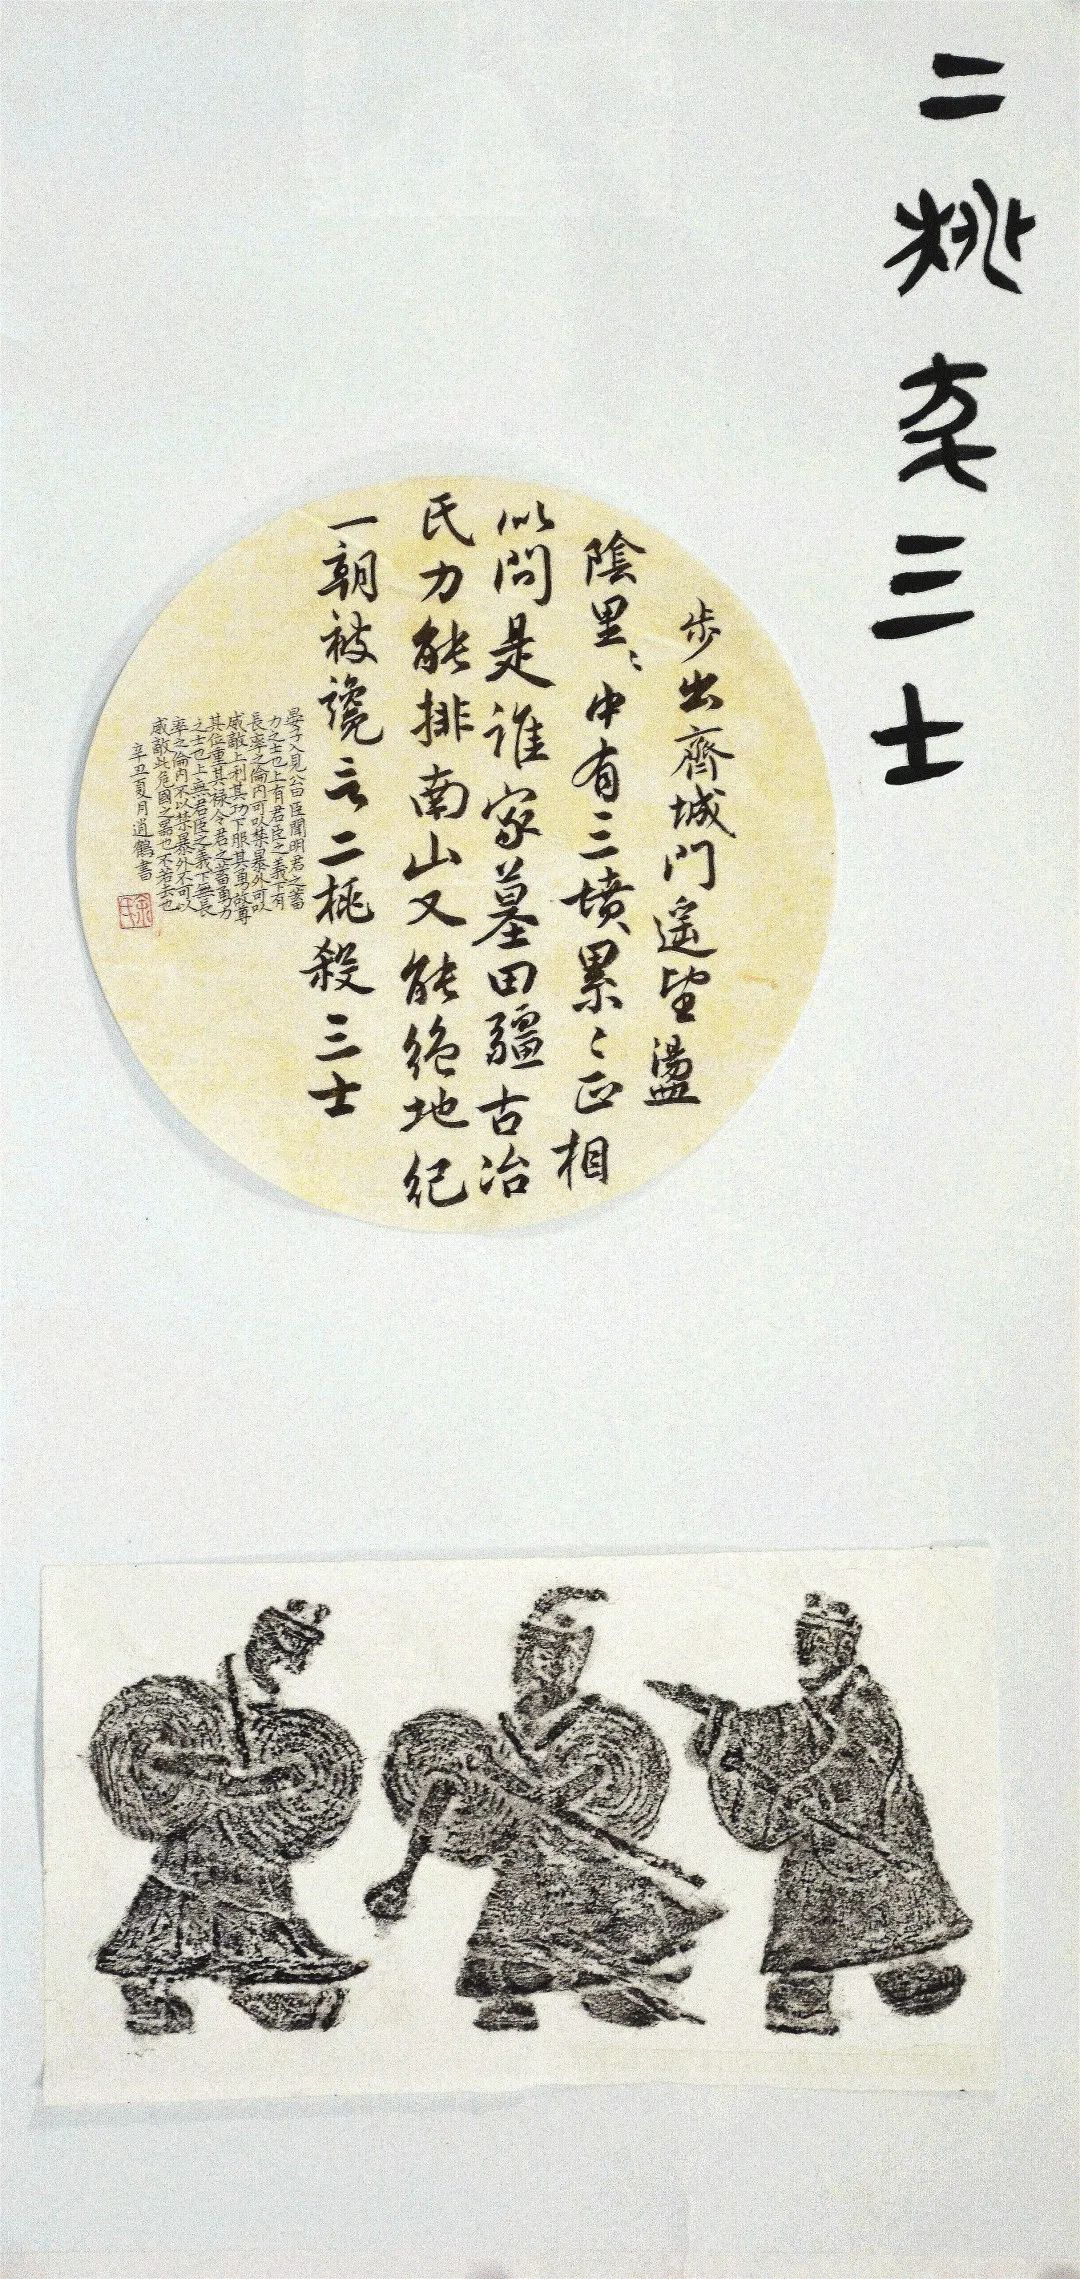 二桃殺三士
步出齊城門遙望盪
陰里〻中有三墳累〻正相
以問是誰家墓田疆古冶
氏力能排南山又能絕地紀
一朝被讒言二桃殺三士
晏子入見公曰臣聞明君之蓄
力之士也上有君臣之義下有
長率之倫內可以禁暴外可以
威敵上利其功下服其勇故尊
其位重其祿今君之蓄勇力
之士也上無君臣之義下無長
率之倫內不以禁暴外不可以
威敵此危國之器也不若去也
辛丑夏月逍鶴書